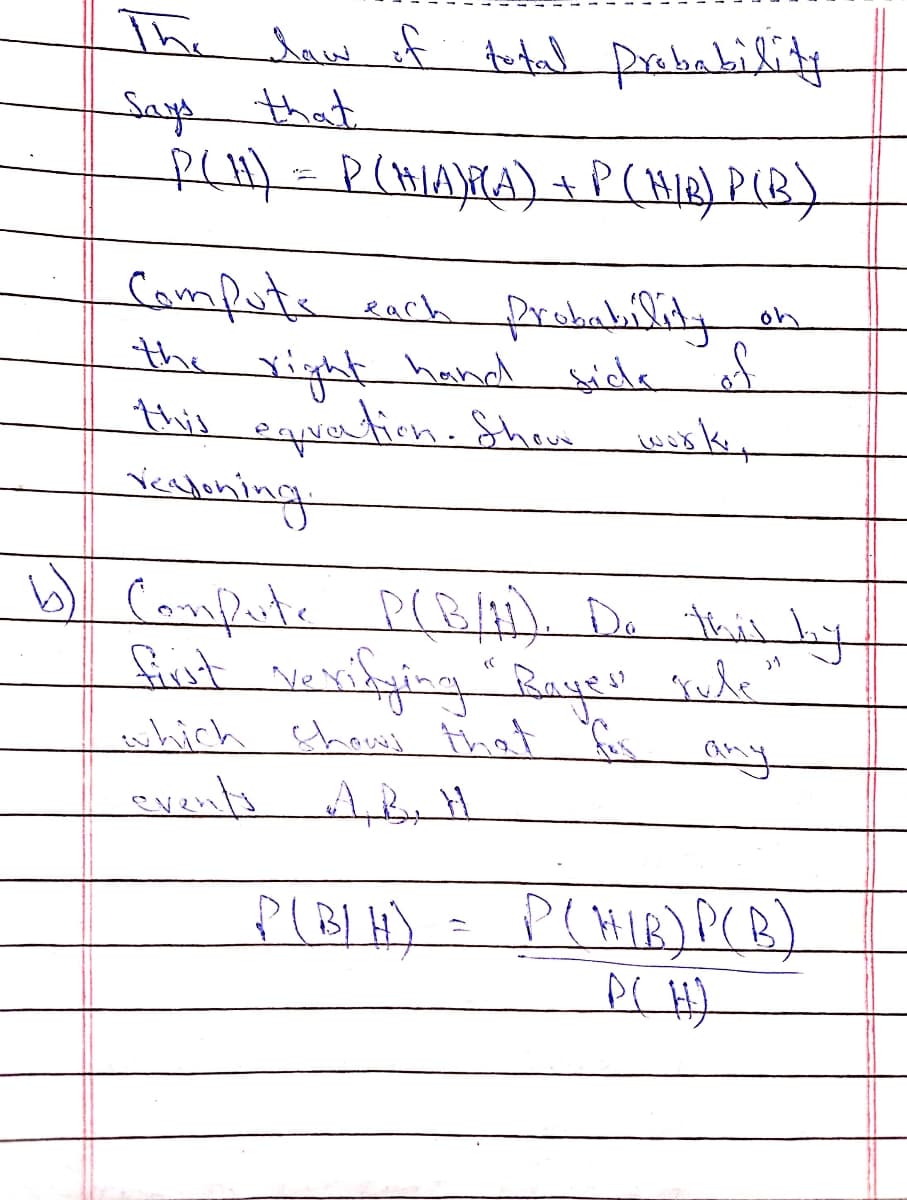 The law of total probability
says that
P(H) = P(H|A)P(A) + P(H|B) P(B)
Compute each probability on
the right hand side of
this equation. Show work,
reasoning.
b) Compute P(B/H). Do this by
first verifying "Bayes' rule"
which shows that for any
events A, B, H
P(B|H) = P(H|B) P(B)
P(H)